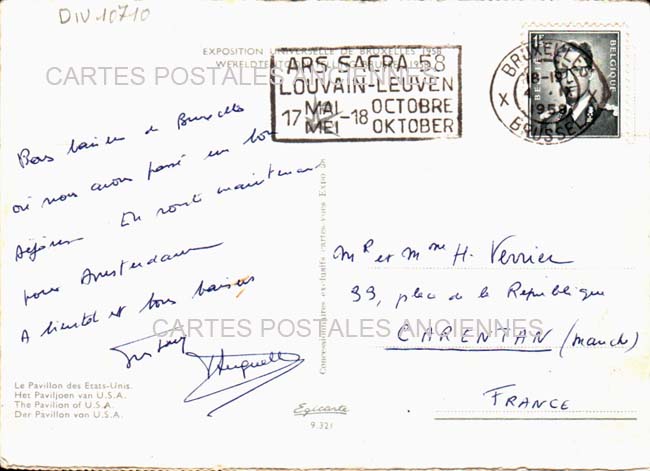 DIV 10710
EXPOSITION UNIVERSELLE DE BRUXELLES 1958
CARTES POSTALES ANCIENNES
ARS SACRA 58
LOUVAIN-LEUVEN
17 MAI MEI -18 OCTOBRE OKTOBER
BRUXELLES
18-19
1958
BRUSSEL
BELGIQUE
Bons baisers de Bruxelles
où nous avons passé un bon
séjour. En route maintenant
pour Amsterdam
A bientôt et bons baisers
Huguette
Mr et Mme H. Verrier
39, place de la République
CARENTAN (Manche)
FRANCE
CARTES POSTALES ANCIENNES
Concessionnaire exclusif cartes vues Expo 58
Le Pavillon des Etats-Unis.
Het Paviljoen van U.S.A.
The Pavilion of U.S.A.
Der Pavillon von U.S.A.
Egicarte
9.321